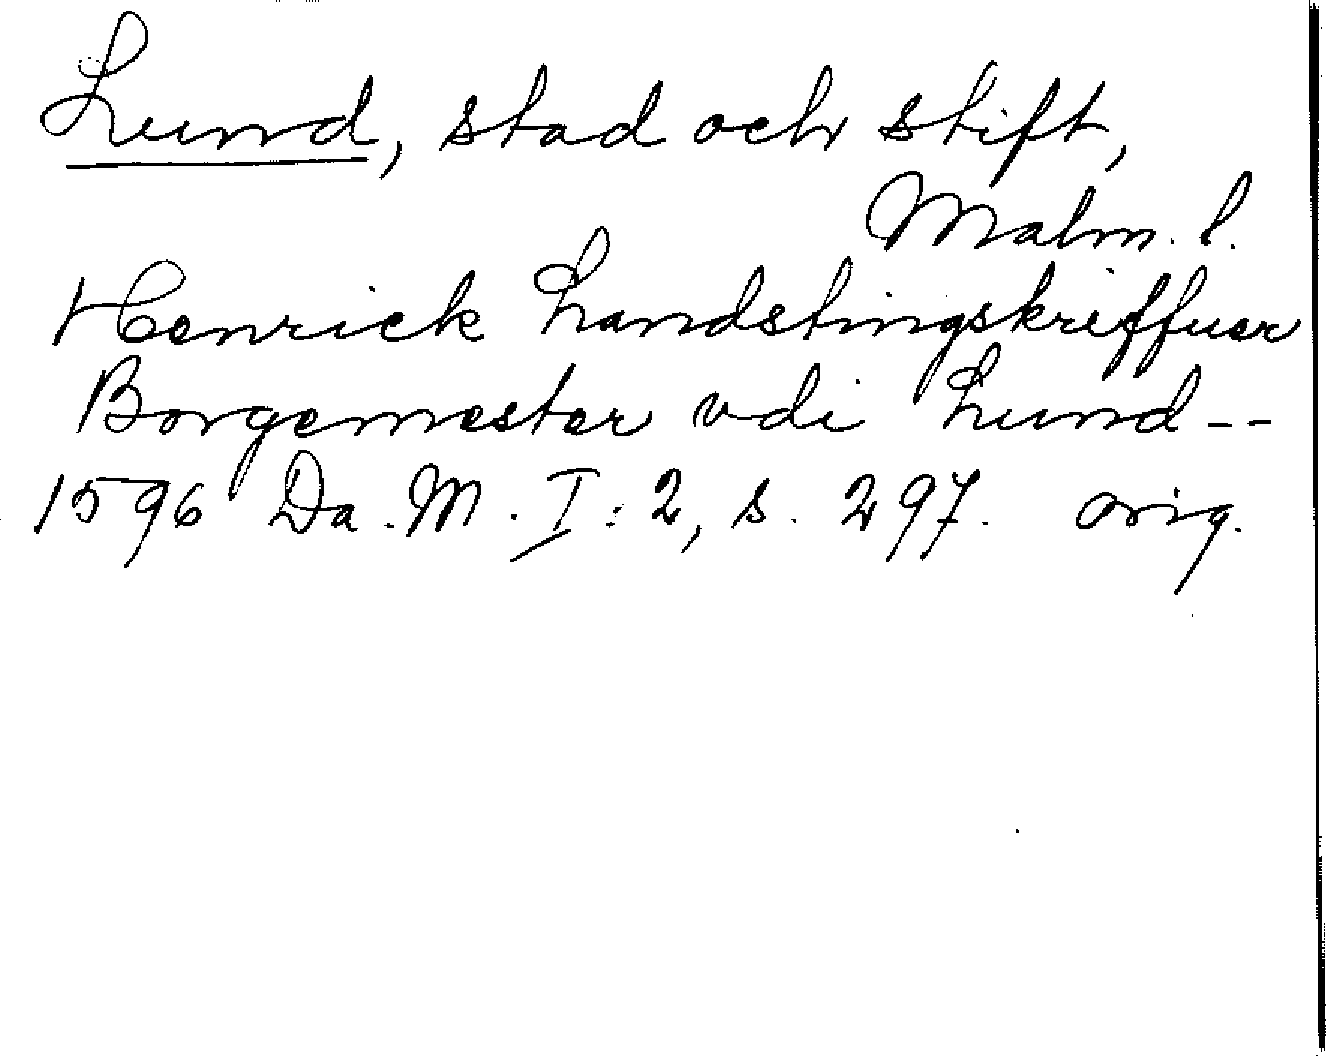 Lund, stad och stift,
Malm. l.
Henrick Landstingskriffuer
Borgemester vdi Lund--
1596 Da. M. I:2, s. 297. orig.